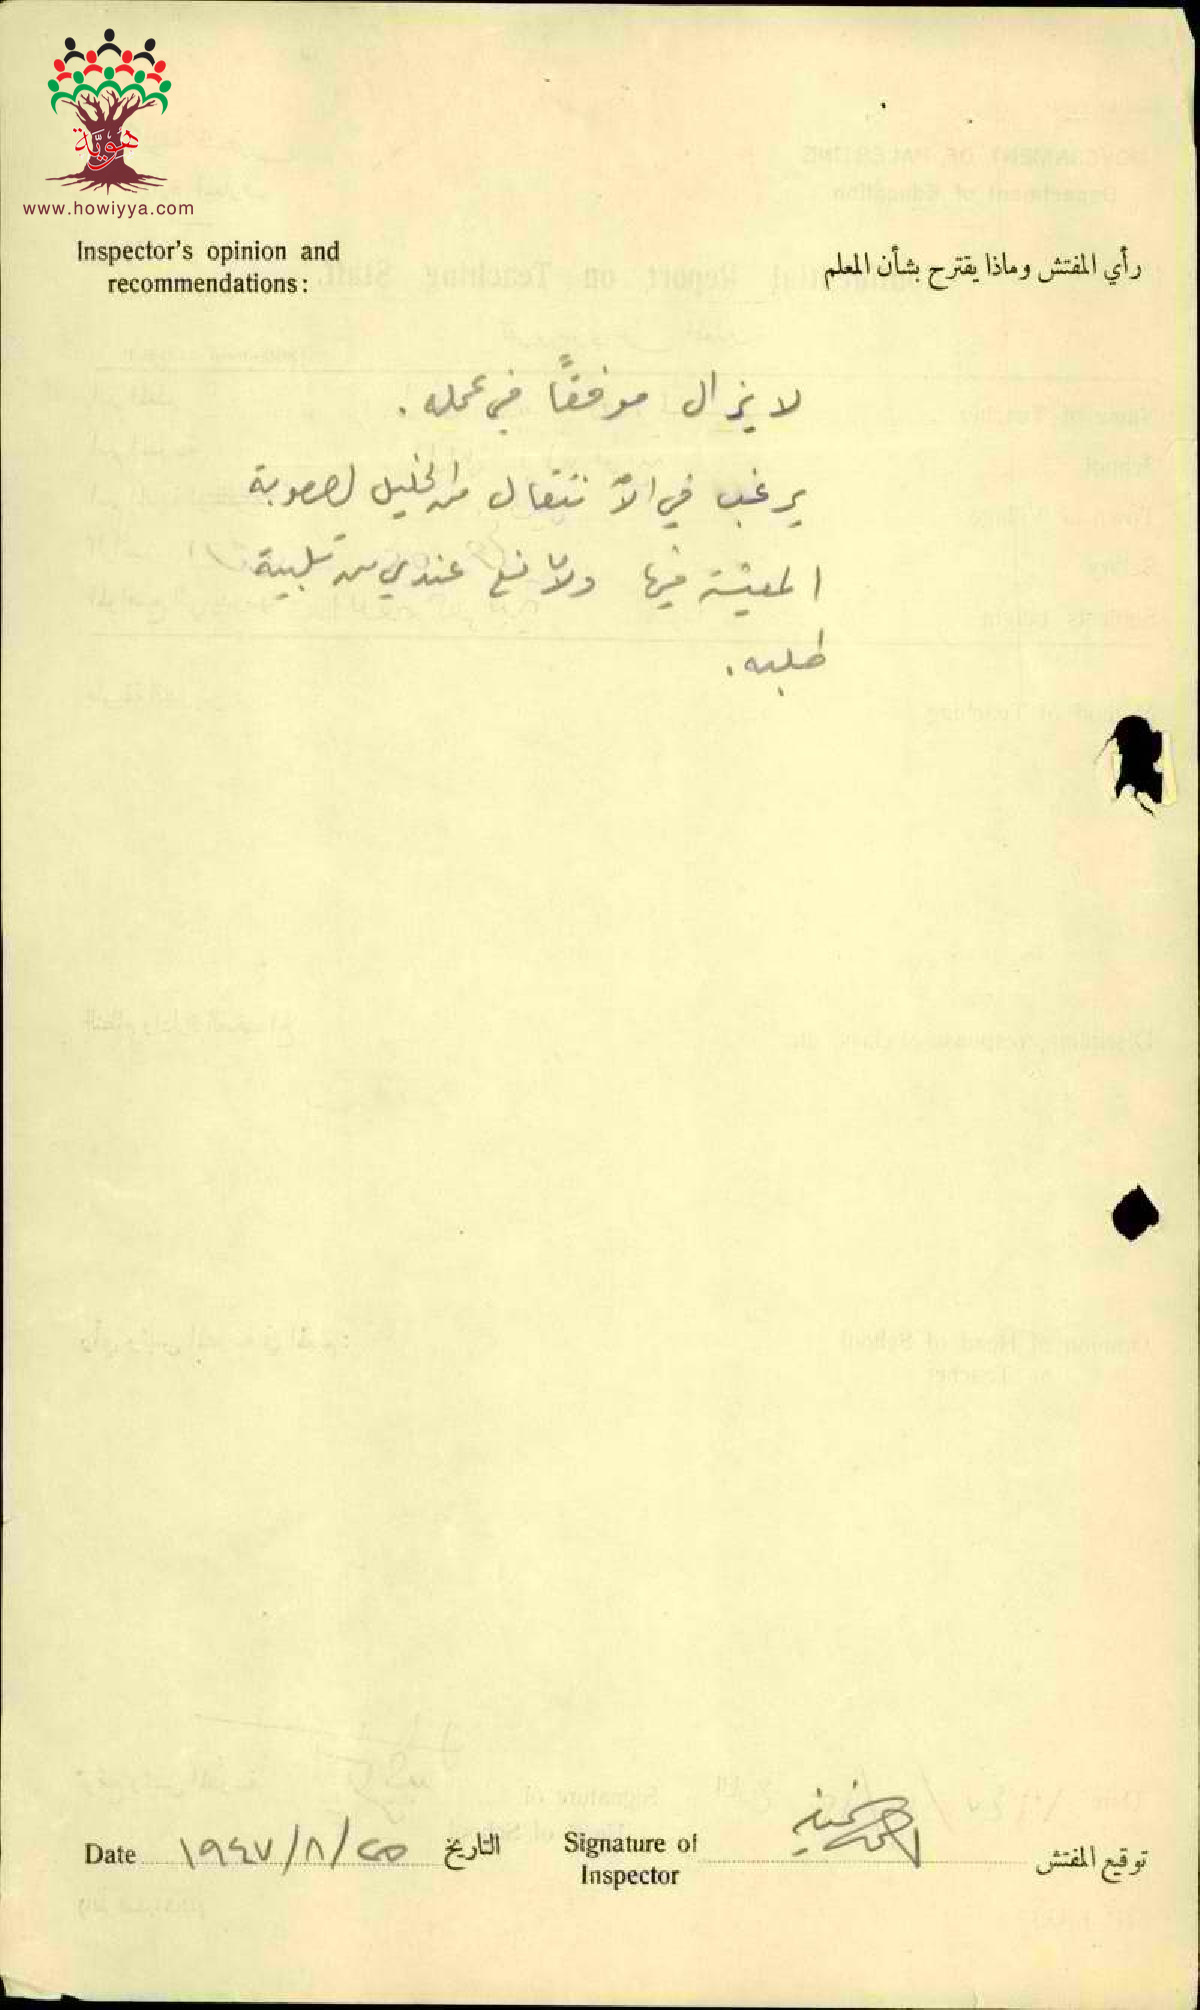 هوية
www.howiyya.com
Inspector's opinion and
recommendations:
رأي المفتش وماذا يقترح بشأن المعلم
لا يزال موفقاً في عمله.
يرغب في الانتقال من الخليل لصعوبة
المعيشة فيها ولا مانع عندي من تلبية
طلبه.
Date ١٩٤٧/٨/٢٥ التاريخ
Signature of
Inspector
توقيع المفتش